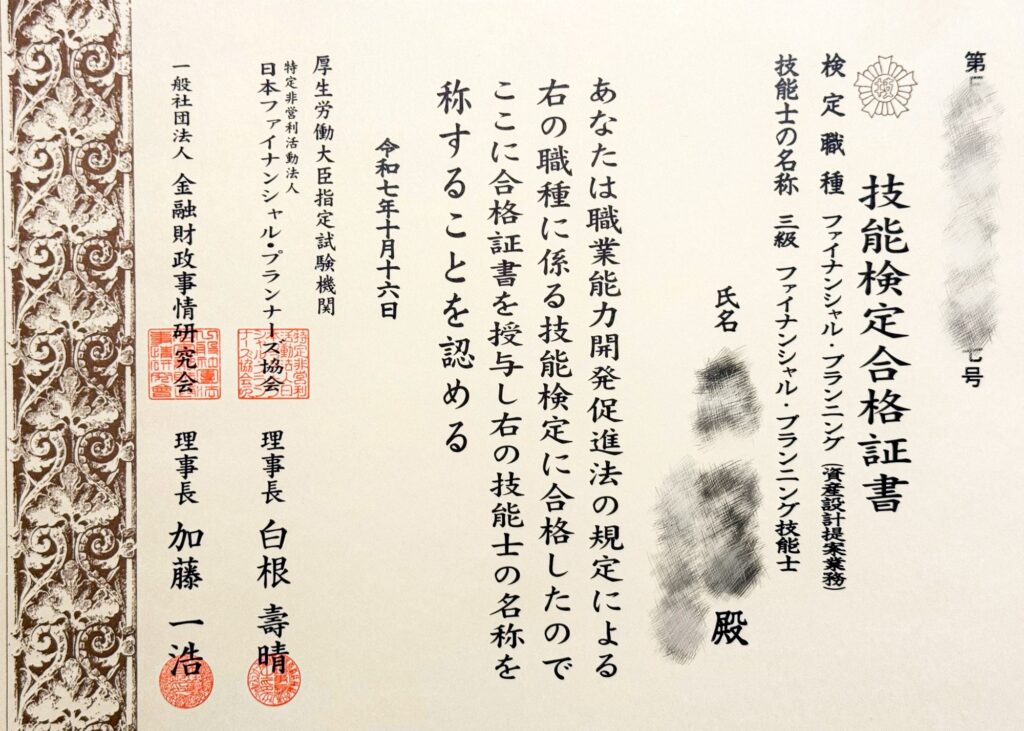 第
七号
技能検定合格証書
検定職種 ファイナンシャル・プランニング(資産設計提案業務)
技能士の名称 三級 ファイナンシャル・プランニング技能士
氏名
殿
あなたは職業能力開発促進法の規定による
右の職種に係る技能検定に合格したので
ここに合格証書を授与し右の技能士の名称を
称することを認める
令和七年十月十六日
厚生労働大臣指定試験機関
特定非営利活動法人
日本ファイナンシャル・プランナーズ協会 理事長 白根 壽晴
一般社団法人 金融財政事情研究会 理事長 加藤 一浩